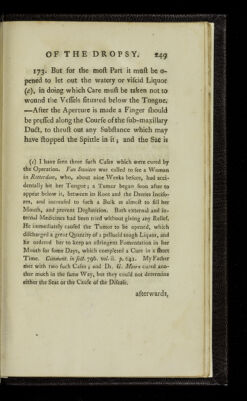 OF THE DROPSY. 249
173. But for the moſt Part it muſt be o-
pened to let out the watery or viſcid Liquor
(e), in doing which Care muſt be taken not to
wound the Veſſels ſituated below the Tongue.
—After the Aperture is made a Finger ſhould
be preſſed along the Courſe of the ſub-maxillary
Duct, to thruſt out any Subſtance which may
have ſtopped the Spittle in it; and the Sac is
(e) I have ſeen three ſuch Caſes which were cured by
the Operation. Van Swieten was called to ſee a Woman
in Rotterdam, who, about nine Weeks before, had acci-
dentally bit her Tongue; a Tumor began ſoon after to
appear below it, between its Root and the Dentes Inciſo-
res, and increaſed to ſuch a Bulk as almoſt to fill her
Mouth, and prevent Deglutition. Both external and in-
ternal Medicines had been tried without giving any Relief.
He immediately cauſed the Tumor to be opened, which
diſcharged a great Quantity of a pellucid tough Liquor, and
he ordered her to keep an aſtringent Fomentation in her
Mouth for ſome Days, which completed a Cure in a ſhort
Time. Comment. in ſect. 796. vol. ii. p. 642. My Father
met with two ſuch Caſes; and Dr. G. Moro cured ano-
ther much in the ſame Way, but they could not determine
either the Seat or the Cauſe of the Diſeaſe.
afterwards,